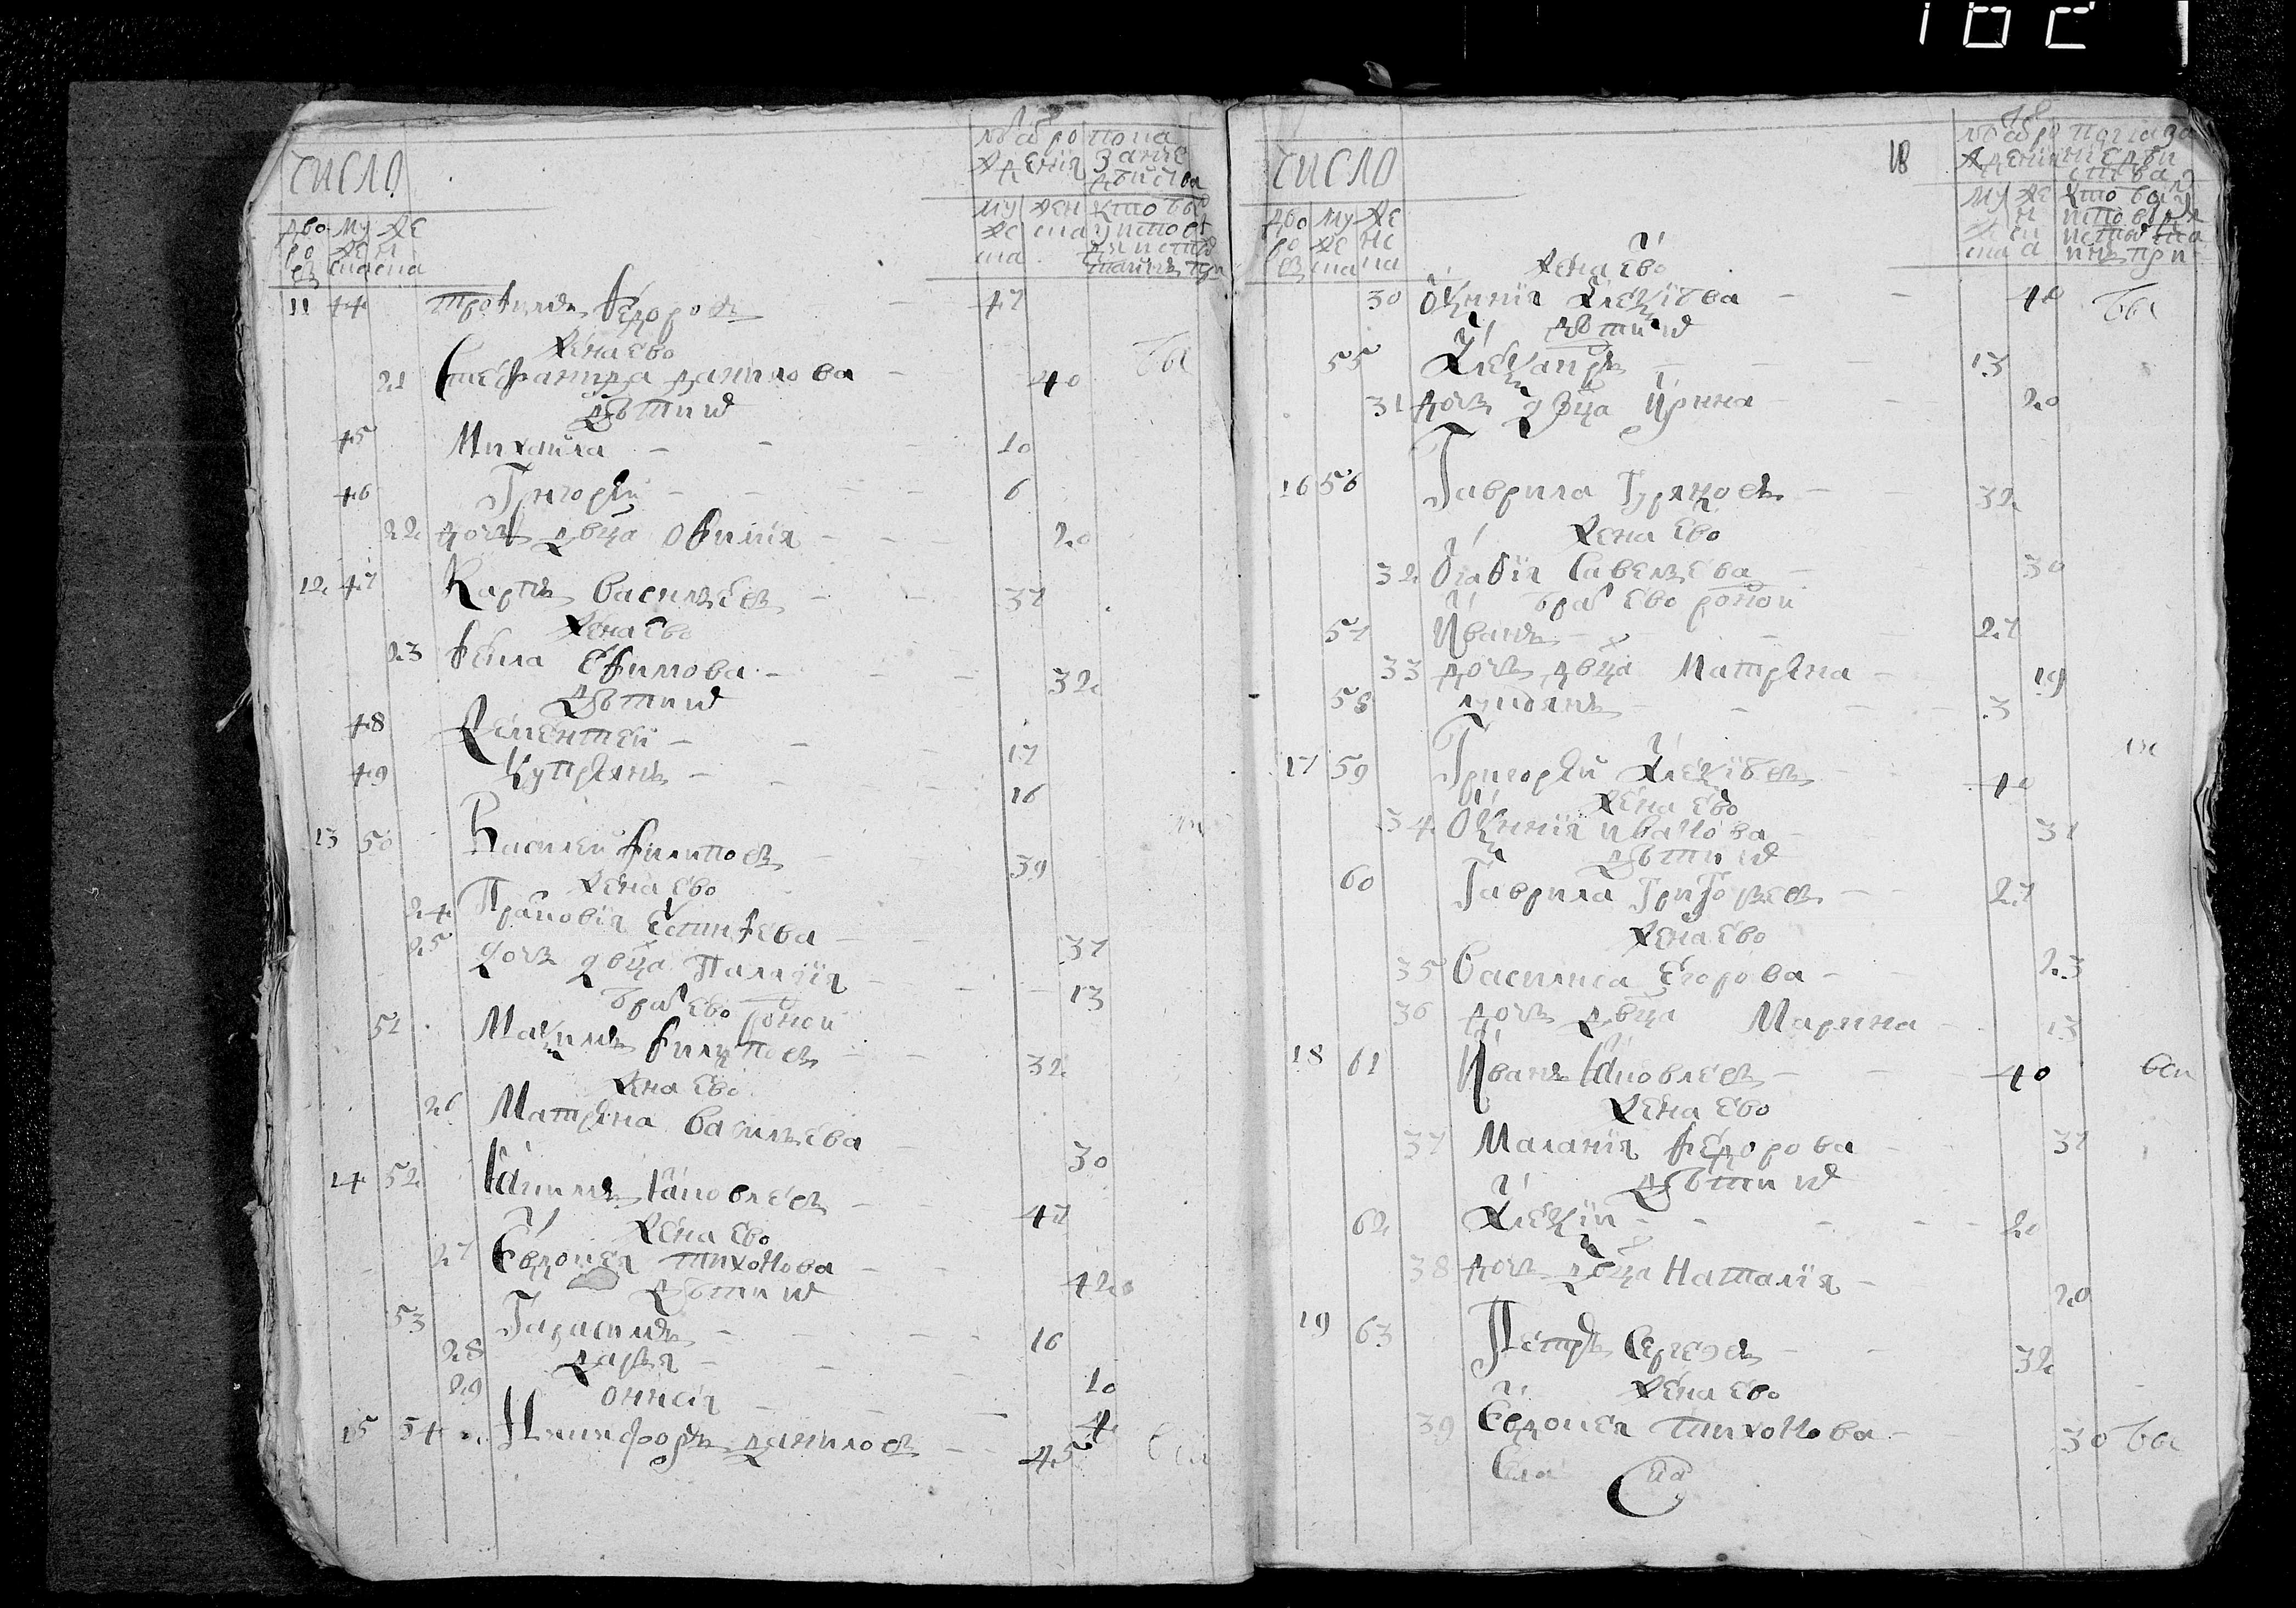 число
лѣта ро
ждения
по пока
зание
дво ро въ
му же ска
же н ска
му же ска
жен ска
11 44 трофимъ федоровъ 47
жена ево
21 Стефанида данилова 40
бы
дѣти их
45 Михаила 10
46 Григорѣй 6
22 дочь двца офимія 20
12 47 Карпъ васильевъ 37
жена ево
23 фекла ефимова 32
дѣти их
48 Клементей 17
49 Купрѣянъ 16
13 50 Василей филиповъ 39
жена ево
24 Прасковія Естифева 37
25 дочь двца Палагія 13
брат ево родной
51 Максимъ филиповъ 32
жена ево
26 Матрѣна васильева 30
14 52 Якимъ Яковлевъ 47
жена ево
27 Євдокея тихонова 42
дѣти их
53 Гарасимъ 16
28 дарья 10
29 онисія 4
15 54 Никифоръ даниловъ 45
18
число
дво ро въ
му же ска
же нс ка
жена ево
30 Оксинія Алексѣева 40 бы
дѣти их
55 Алексанръ 13
31 дочь двца Ирина 20
16 56 Гаврила Гурековъ 32
жена ево
32 Огафія Савельева 30
брат ево родной
57 Иванъ 27
33 дочь двца Матрѣна 19
58 лукоянъ 3
17 59 Григорѣй Алексѣевъ 40
жена ево
34 Оксинія иванова 37
дѣти их
60 Гаврила Григорьевъ 27
жена ево
35 Василиса Егорова 23
36 дочь двца Марина 13
18 61 Иванъ Яковлевъ 40
жена ево
37 Маланія федорова 37
дѣти их
62 Алексѣи 20
38 дочь двца Наталія 20
19 63 Петръ Сергеевъ 32
жена ево
39 Євдокея тихонова 30 бы